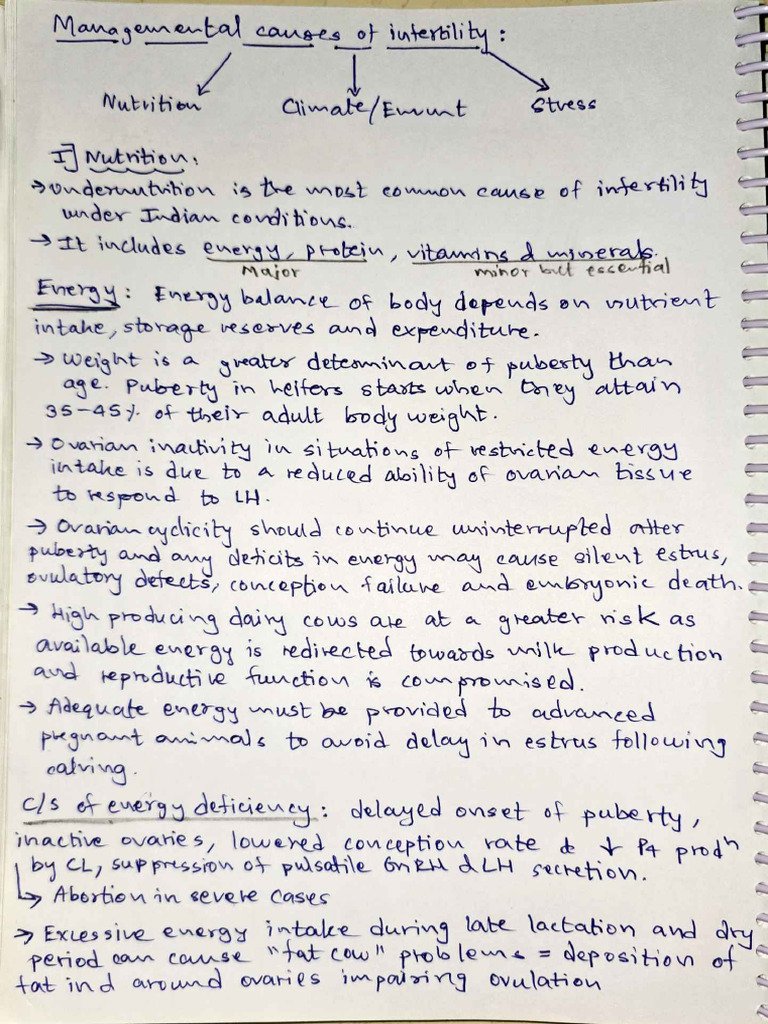 Managemental causes of infertility :
Nutrition Climate/Envmnt Stress
I] Nutrition :
→ Undernutrition is the most common cause of infertility
under Indian conditions.
→ It includes energy, protein, vitamins & minerals.
Major minor but essential
Energy : Energy balance of body depends on nutrient
intake, storage reserves and expenditure.
→ Weight is a greater determinant of puberty than
age. Puberty in heifers starts when they attain
35-45% of their adult body weight.
→ Ovarian inactivity in situations of restricted energy
intake is due to a reduced ability of ovarian tissue
to respond to LH.
→ Ovarian cyclicity should continue uninterrupted after
puberty and any deficits in energy may cause silent estrus,
ovulatory defects, conception failure and embryonic death.
→ High producing dairy cows are at a greater risk as
available energy is redirected towards milk production
and reproductive function is compromised.
→ Adequate energy must be provided to advanced
pregnant animals to avoid delay in estrus following
calving.
C/S of energy deficiency : delayed onset of puberty,
inactive ovaries, lowered conception rate & ↓ P4 prodⁿ
by CL, suppression of pulsatile GnRH & LH secretion.
↳ Abortion in severe cases
→ Excessive energy intake during late lactation and dry
period can cause "fat cow" problems = deposition of
fat in d around ovaries impairing ovulation